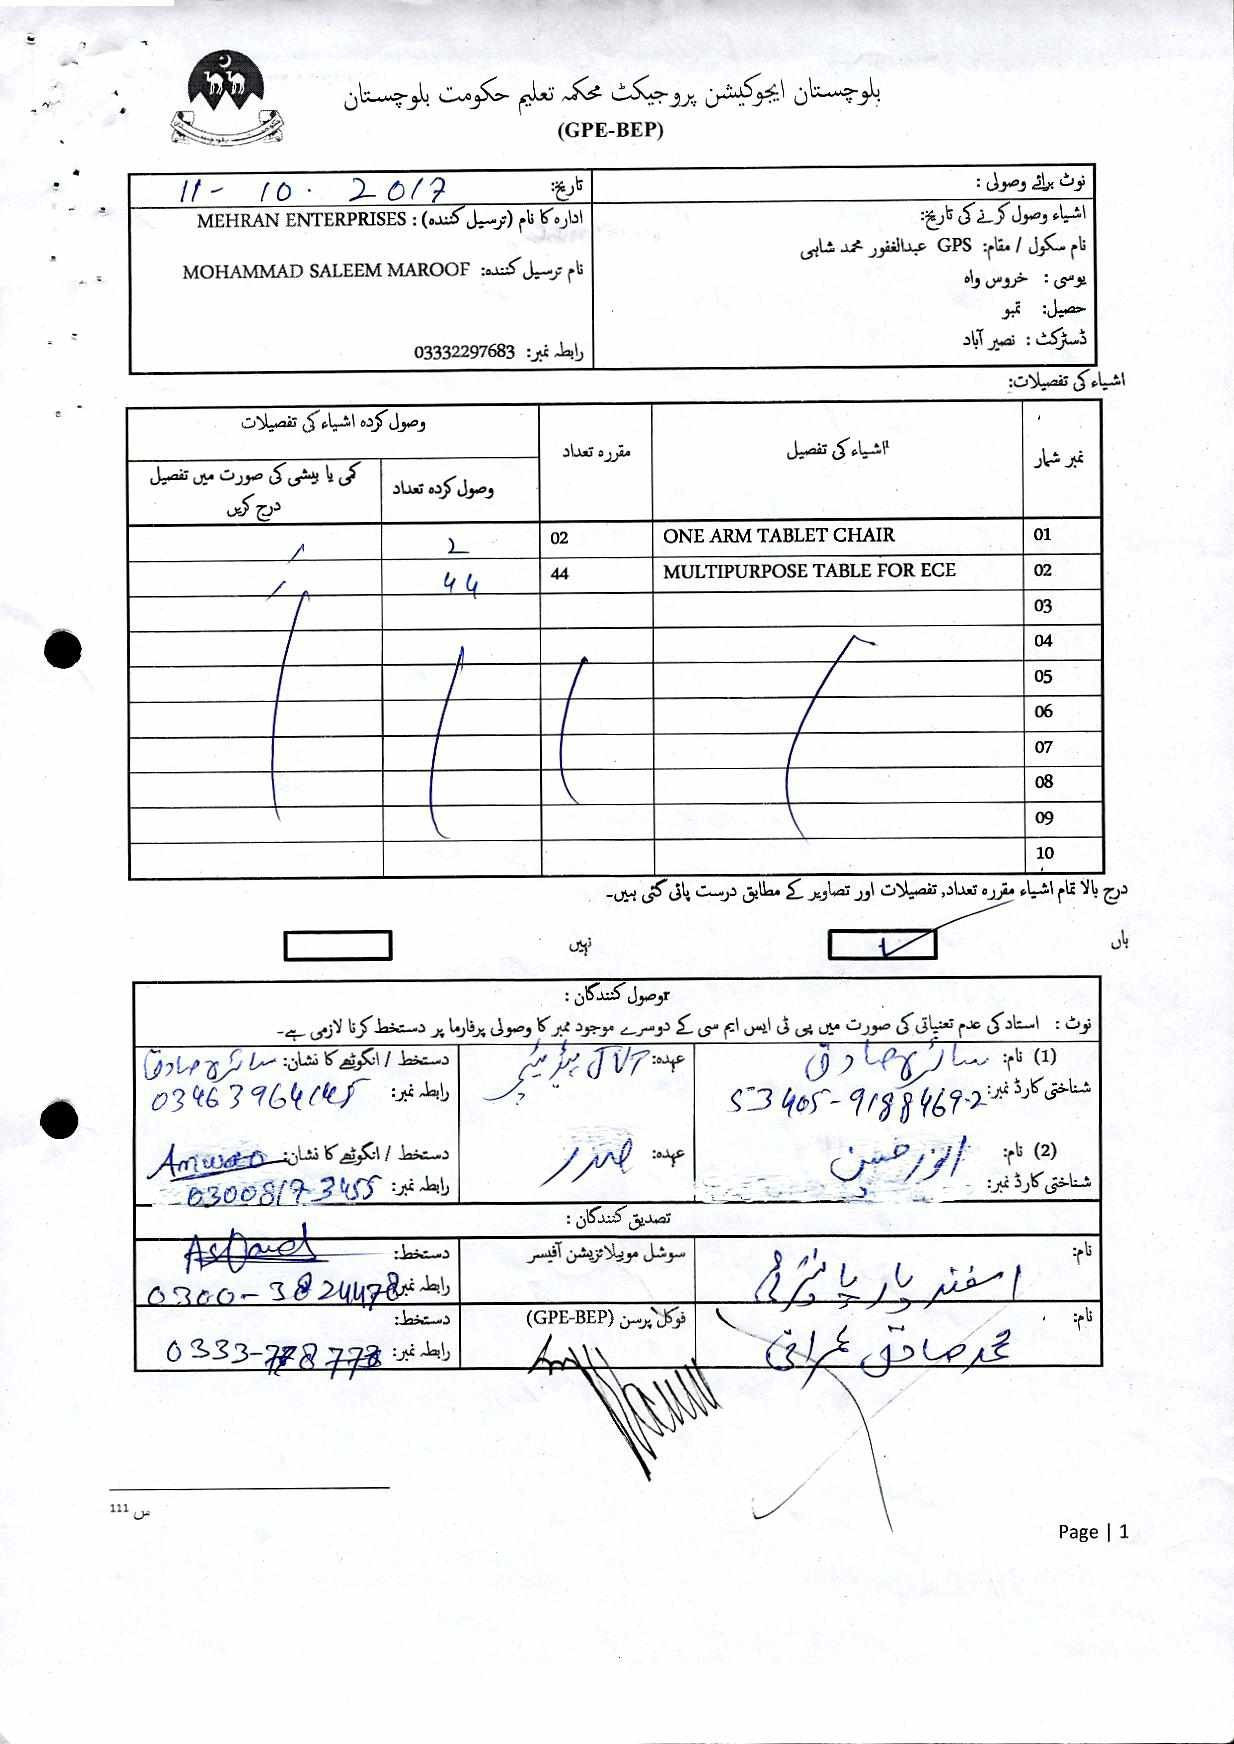 بلوچستان ایجوکیشن پروجیکٹ محکمہ تعلیم حکومت بلوچستان
(GPE-BEP)
نوٹ برائے وصولی :
تاریخ: 11-10.2017
اشیاء وصول کرنے کی تاریخ:
ادارہ کا نام (ترسیل کنندہ) : MEHRAN ENTERPRISES
نام سکول / مقام: GPS عبدالغفور محمد شاہی
نام ترسیل کنندہ: MOHAMMAD SALEEM MAROOF
یوسی : خروس واہ
حصیل: تمبو
ڈسٹرکٹ : نصیر آباد
رابطہ نمبر: 03332297683
اشیاء کی تفصیلات:
نمبر شمار اشیاء کی تفصیل مقررہ تعداد وصول کردہ اشیاء کی تفصیلات
وصول کردہ تعداد کمی یا بیشی کی صورت میں تفصیل درج کریں
01 ONE ARM TABLET CHAIR 02 2
02 MULTIPURPOSE TABLE FOR ECE 44 44
03
04
05
06
07
08
09
10
درج بالا تمام اشیاء مقررہ تعداد, تفصیلات اور تصاویر کے مطابق درست پائی گئی ہیں۔
ہاں نہیں
وصول کنندگان :
نوٹ : استاد کی عدم تعیناتی کی صورت میں پی ٹی ایس ایم سی کے دوسرے موجود ممبر کا وصولی پرفارما پر دستخط کرنا لازمی ہے۔
(1) نام: سائرہ صادق عہدہ: JVT دستخط / انگوٹھے کا نشان: سائرہ صادق
شناختی کارڈ نمبر: 53405-9188469-2 رابطہ نمبر: 03463964145
(2) نام: انور حسن عہدہ: صدر دستخط / انگوٹھے کا نشان:
شناختی کارڈ نمبر: رابطہ نمبر: 03008173455
تصدیق کنندگان :
نام: اسفند یار سوشل موبیلائزیشن آفیسر دستخط:
رابطہ نمبر: 0300-3824478
نام: محمد صادق عمرانی فوکل پرسن (GPE-BEP) دستخط:
رابطہ نمبر:
111 س
Page | 1